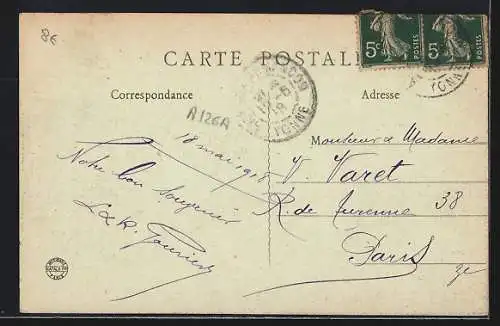 8€
CARTE POSTALE
5c POSTES 5 POSTES
Correspondance
Adresse
A126A
YONNE
YONNE
18 mai 1918
Notre bon Souvenir
Monsieur & Madame
V. Varet
R. de Turenne 38
Paris
3e